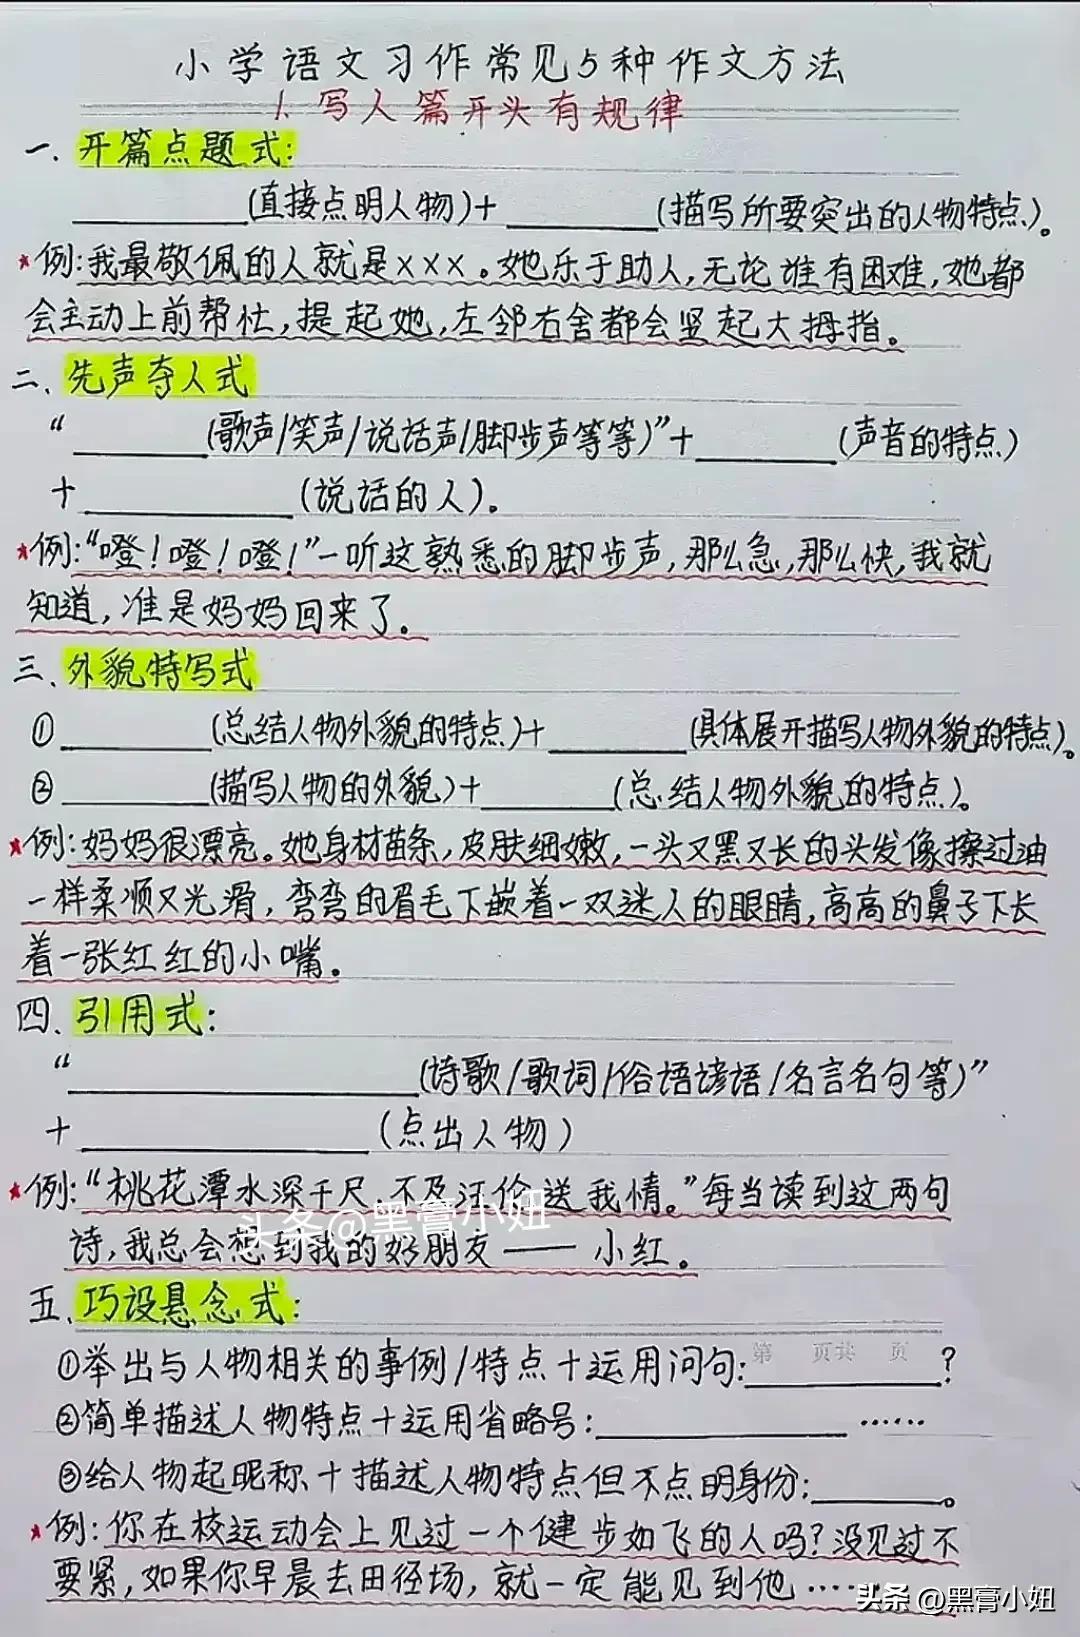 小学语文习作常见5种作文方法
1.写人篇开头有规律
一、开篇点题式:
________(直接点明人物)+________(描写所要突出的人物特点)。
★例:我最敬佩的人就是×××。她乐于助人,无论谁有困难,她都
会主动上前帮忙,提起她,左邻右舍都会竖起大拇指。
二、先声夺人式
“________(歌声/笑声/说话声/脚步声等等)”+________(声音的特点)
+________(说话的人)。
★例:“噔!噔!噔!”一听这熟悉的脚步声,那么急,那么快,我就
知道,准是妈妈回来了。
三、外貌特写式
①________(总结人物外貌的特点)+________(具体展开描写人物外貌的特点)。
②________(描写人物的外貌)+________(总结人物外貌的特点)。
★例:妈妈很漂亮。她身材苗条,皮肤细嫩,一头又黑又长的头发像擦过油
一样柔顺又光滑,弯弯的眉毛下嵌着一双迷人的眼睛,高高的鼻子下长
着一张红红的小嘴。
四、引用式:
“________(诗歌/歌词/俗语谚语/名言名句等)”
+________(点出人物)
★例:“桃花潭水深千尺,不及汪伦送我情。”每当读到这两句
头条@黑膏小妞
诗,我总会想到我的好朋友——小红。
五、巧设悬念式:
第 页共 页
①举出与人物相关的事例/特点+运用问句:________?
②简单描述人物特点+运用省略号:________……
③给人物起昵称+描述人物特点但不点明身份:________。
★例:你在校运动会上见过一个健步如飞的人吗?没见过不
要紧,如果你早晨去田径场,就一定能见到他……
头条@黑膏小妞